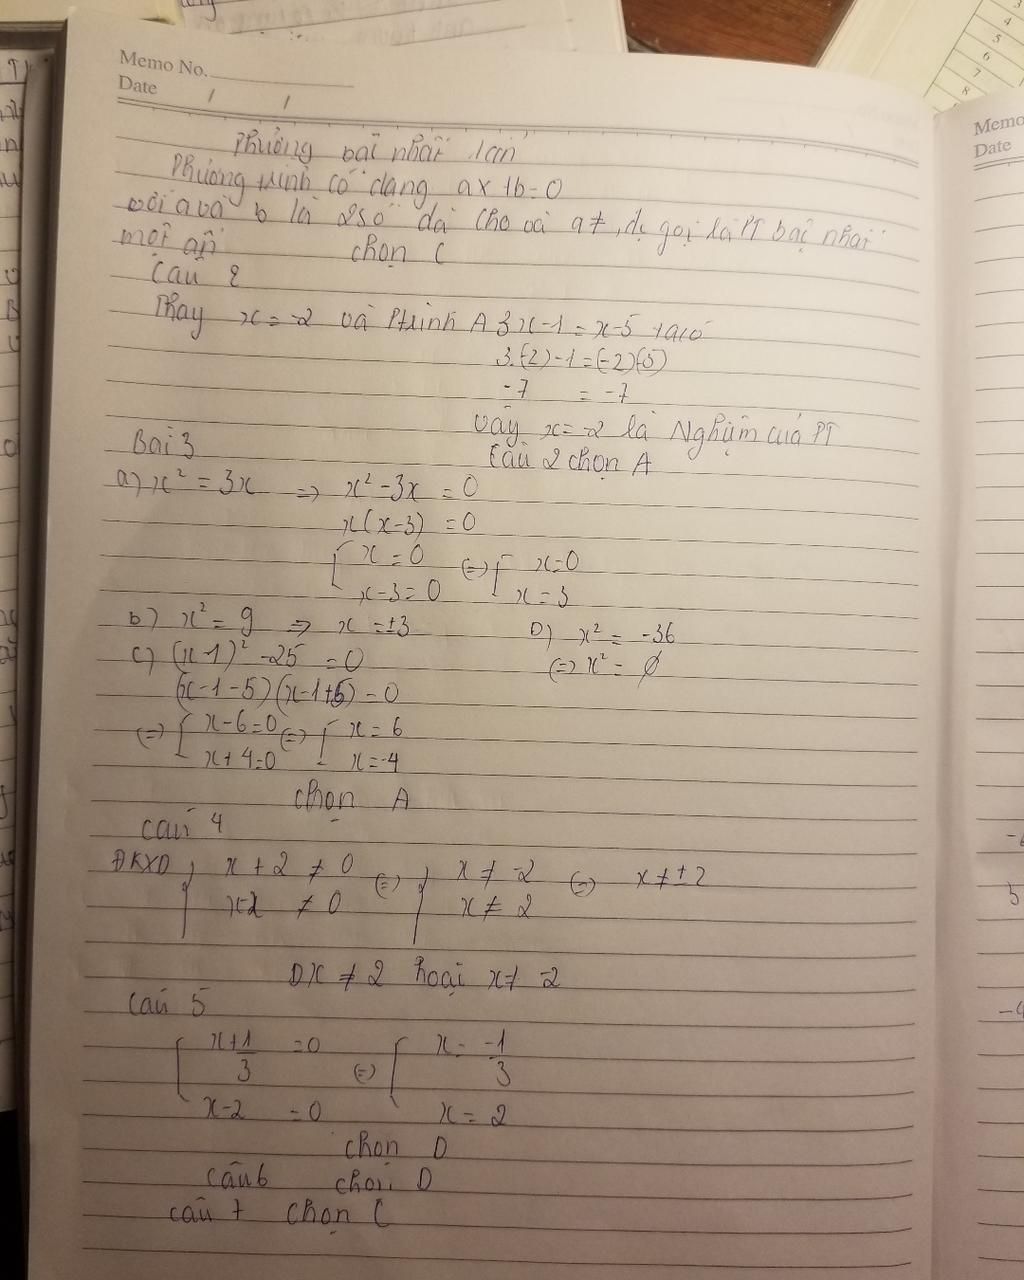 Memo No.
Date / /
Phương bậc nhất 1 ẩn
Phương trình có dạng ax + b = 0
với a và b là 2 số đã cho và a ≠, đc gọi là PT bậc nhất
một ẩn chọn C
Câu 2
Thay x = -2 và Ptrình A 3x - 1 = x - 5 ta có
3.(-2) - 1 = (-2)(-5)
-7 = -7
Vậy x = -2 là Nghiệm của PT
Câu 2 chọn A
Bài 3
a) x² = 3x => x² - 3x = 0
x(x - 3) = 0
[ x = 0 (=) [ x = 0
x - 3 = 0 x = 3
b) x² = 9 => x = ±3 D) x² = -36
c) (x - 1)² - 25 = 0 (=) x² = ∅
(x - 1 - 5)(x - 1 + 5) = 0
(=) [ x - 6 = 0 (=) [ x = 6
x + 4 = 0 x = -4
chọn A
câu 4
ĐKXD { x + 2 ≠ 0 (=) { x ≠ -2 (=) x ≠ ±2
x - 2 ≠ 0 x ≠ 2
D x ≠ 2 hoặc x ≠ -2
Câu 5
[ x + 1/3 = 0 (=) [ x = -1/3
x - 2 = 0 x = 2
chọn D
câu 6 chọn D
câu 7 chọn C
Memo
Date
3
4
5
6
7
8